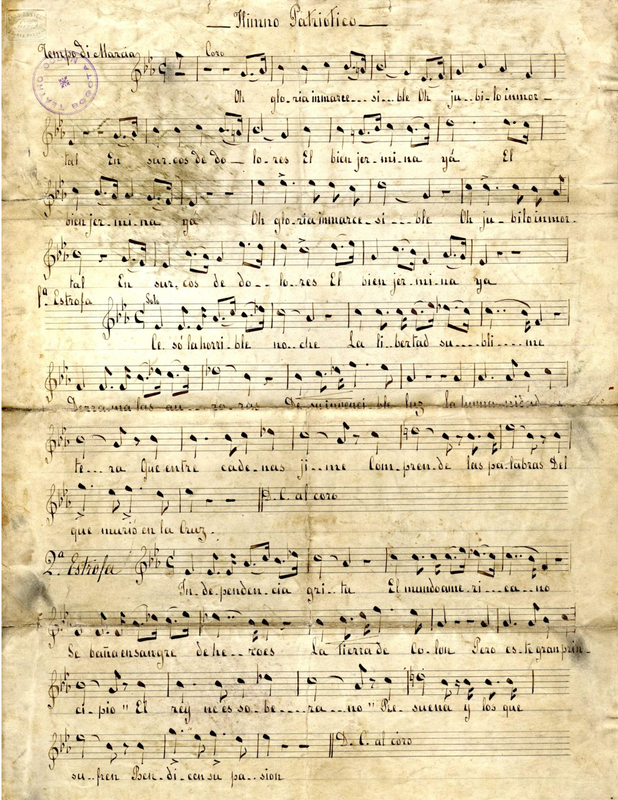 Himno Patriotico
Tempo di Marcia Coro
Oh glo-ria inmarce---si-ble Oh ju-bi-lo inmor-
tal En sur-cos de do-lo-res El bien jer-mi-na yá El
bien jer-mi-na ya Oh glo-ria inmarce-si---ble Oh ju-bilo inmor-
tal En sur-cos de do--lo-res El bien jer-mi-na ya
1ª Estrofa Solo
Ce-só la horri-ble no-che La li-bertad su---bli---me
Derrama las au-ro-ras De su invenci-ble luz la huma-nidad
te---ra Que entre cade-nas ji--me Com-pren-de las pa-labras Del
que murió en la Cruz. D. C. al coro
2ª Estrofa
In-de-penden-cia gri-ta El mundo ame-ri---ca-no
Se baña en sangre de he--roes La tierra de Co-lon Pero es-te gran prin-
ci-pio " El rey no es so-be----ra--no " Re-suena y los que
su--fren Ben-di-cen su pa-sion D. C. al coro